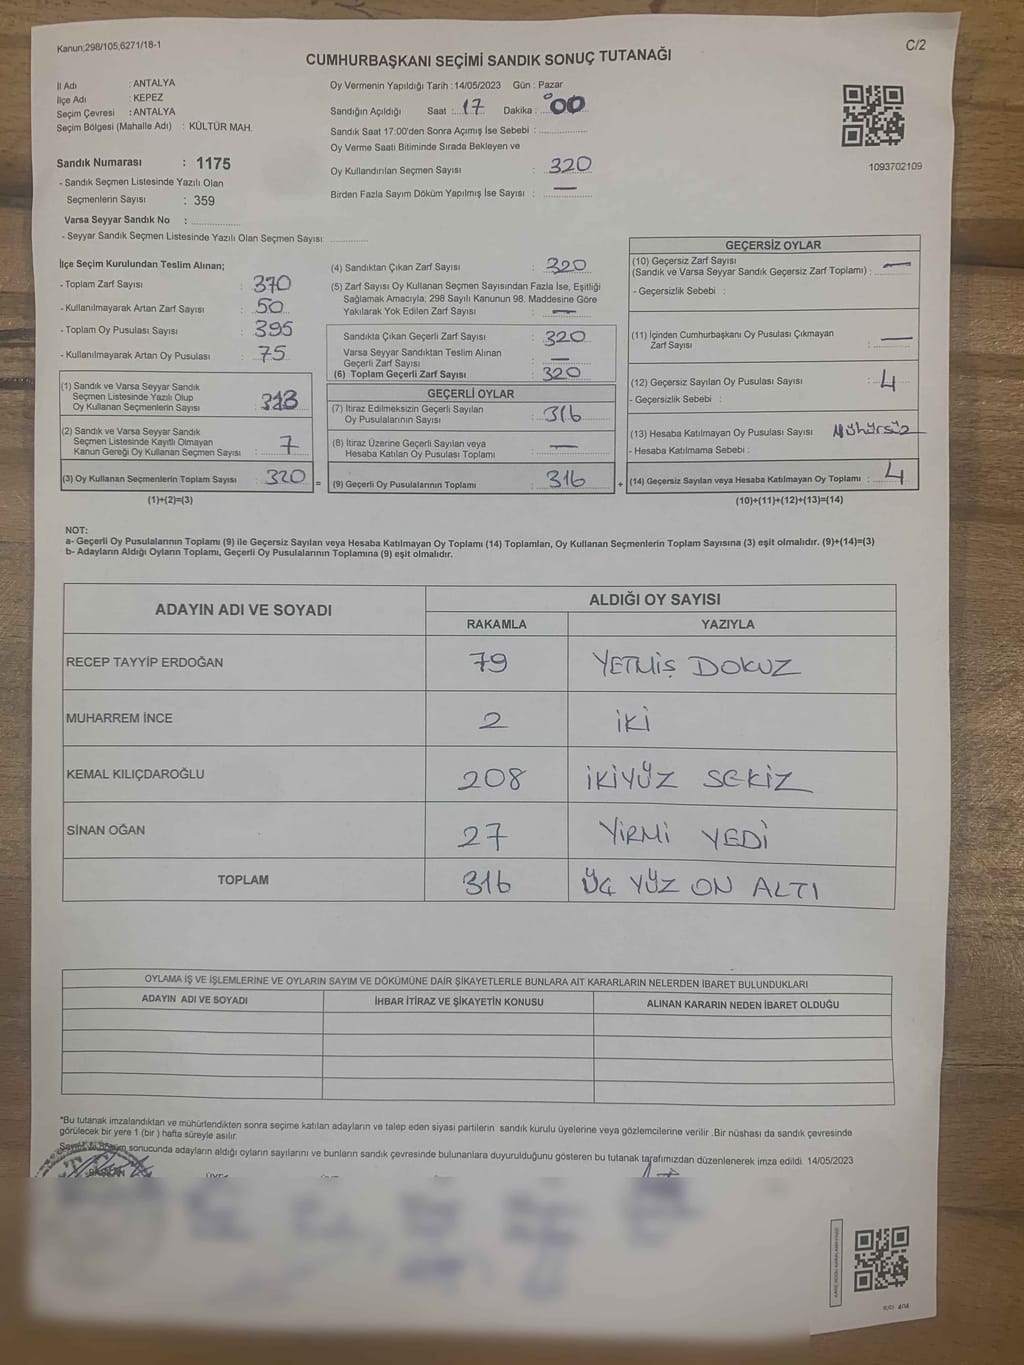 Kanun;298/105,6271/18-1
C/2
CUMHURBAŞKANI SEÇİMİ SANDIK SONUÇ TUTANAĞI
İl Adı : ANTALYA
İlçe Adı : KEPEZ
Seçim Çevresi : ANTALYA
Seçim Bölgesi (Mahalle Adı) : KÜLTÜR MAH.
Sandık Numarası : 1175
- Sandık Seçmen Listesinde Yazılı Olan
Seçmenlerin Sayısı : 359
Varsa Seyyar Sandık No :
- Seyyar Sandık Seçmen Listesinde Yazılı Olan Seçmen Sayısı:
Oy Vermenin Yapıldığı Tarih : 14/05/2023 Gün : Pazar
Sandığın Açıldığı Saat : 17 Dakika : 00
Sandık Saat 17:00'den Sonra Açımış İse Sebebi :
Oy Verme Saati Bitiminde Sırada Bekleyen ve
Oy Kullandırılan Seçmen Sayısı : 320
Birden Fazla Sayım Döküm Yapılmış İse Sayısı : —
1093702109
İlçe Seçim Kurulundan Teslim Alınan;
- Toplam Zarf Sayısı : 370
- Kullanılmayarak Artan Zarf Sayısı : 50
- Toplam Oy Pusulası Sayısı : 395
- Kullanılmayarak Artan Oy Pusulası : 75
(1) Sandık ve Varsa Seyyar Sandık
Seçmen Listesinde Yazılı Olup
Oy Kullanan Seçmenlerin Sayısı : 313
(2) Sandık ve Varsa Seyyar Sandık
Seçmen Listesinde Kayıtlı Olmayan
Kanun Gereği Oy Kullanan Seçmen Sayısı : 7
(3) Oy Kullanan Seçmenlerin Toplam Sayısı : 320 =
(1)+(2)=(3)
(4) Sandıktan Çıkan Zarf Sayısı : 320
(5) Zarf Sayısı Oy Kullanan Seçmen Sayısından Fazla İse, Eşitliği
Sağlamak Amacıyla, 298 Sayılı Kanunun 98. Maddesine Göre
Yakılarak Yok Edilen Zarf Sayısı : —
Sandıkta Çıkan Geçerli Zarf Sayısı : 320
Varsa Seyyar Sandıktan Teslim Alınan
Geçerli Zarf Sayısı : —
(6) Toplam Geçerli Zarf Sayısı : 320
GEÇERLİ OYLAR
(7) İtiraz Edilmeksizin Geçerli Sayılan
Oy Pusulalarının Sayısı : 316
(8) İtiraz Üzerine Geçerli Sayılan veya
Hesaba Katılan Oy Pusulası Toplamı : —
(9) Geçerli Oy Pusulalarının Toplamı : 316 +
GEÇERSİZ OYLAR
(10) Geçersiz Zarf Sayısı
(Sandık ve Varsa Seyyar Sandık Geçersiz Zarf Toplamı) : —
- Geçersizlik Sebebi :
(11) İçinden Cumhurbaşkanı Oy Pusulası Çıkmayan
Zarf Sayısı : —
(12) Geçersiz Sayılan Oy Pusulası Sayısı : 4
- Geçersizlik Sebebi :
(13) Hesaba Katılmayan Oy Pusulası Sayısı : Mühürsüz
- Hesaba Katılmama Sebebi :
(14) Geçersiz Sayılan veya Hesaba Katılmayan Oy Toplamı : 4
(10)+(11)+(12)+(13)=(14)
NOT:
a- Geçerli Oy Pusulalarının Toplamı (9) ile Geçersiz Sayılan veya Hesaba Katılmayan Oy Toplamı (14) Toplamları, Oy Kullanan Seçmenlerin Toplam Sayısına (3) eşit olmalıdır. (9)+(14)=(3)
b- Adayların Aldığı Oyların Toplamı, Geçerli Oy Pusulalarının Toplamına (9) eşit olmalıdır.
ADAYIN ADI VE SOYADI ALDIĞI OY SAYISI
RAKAMLA YAZIYLA
RECEP TAYYİP ERDOĞAN 79 YETMİŞ DOKUZ
MUHARREM İNCE 2 İKİ
KEMAL KILIÇDAROĞLU 208 İKİYÜZ SEKİZ
SİNAN OĞAN 27 YİRMİ YEDİ
TOPLAM 316 ÜÇ YÜZ ON ALTI
OYLAMA İŞ VE İŞLEMLERİNE VE OYLARIN SAYIM VE DÖKÜMÜNE DAİR ŞİKAYETLERLE BUNLARA AİT KARARLARIN NELERDEN İBARET BULUNDUKLARI
ADAYIN ADI VE SOYADI İHBAR İTİRAZ VE ŞİKAYETİN KONUSU ALINAN KARARIN NEDEN İBARET OLDUĞU
*Bu tutanak imzalandıktan ve mühürlendikten sonra seçime katılan adayların ve talep eden siyasi partilerin sandık kurulu üyelerine veya gözlemcilerine verilir .Bir nüshası da sandık çevresinde
görülecek bir yere 1 (bir ) hafta süreyle asılır.
sonucunda adayların aldığı oyların sayılarını ve bunların sandık çevresinde bulunanlara duyurulduğunu gösteren bu tutanak tarafımızdan düzenlenerek imza edildi. 14/05/2023
BAŞKAN